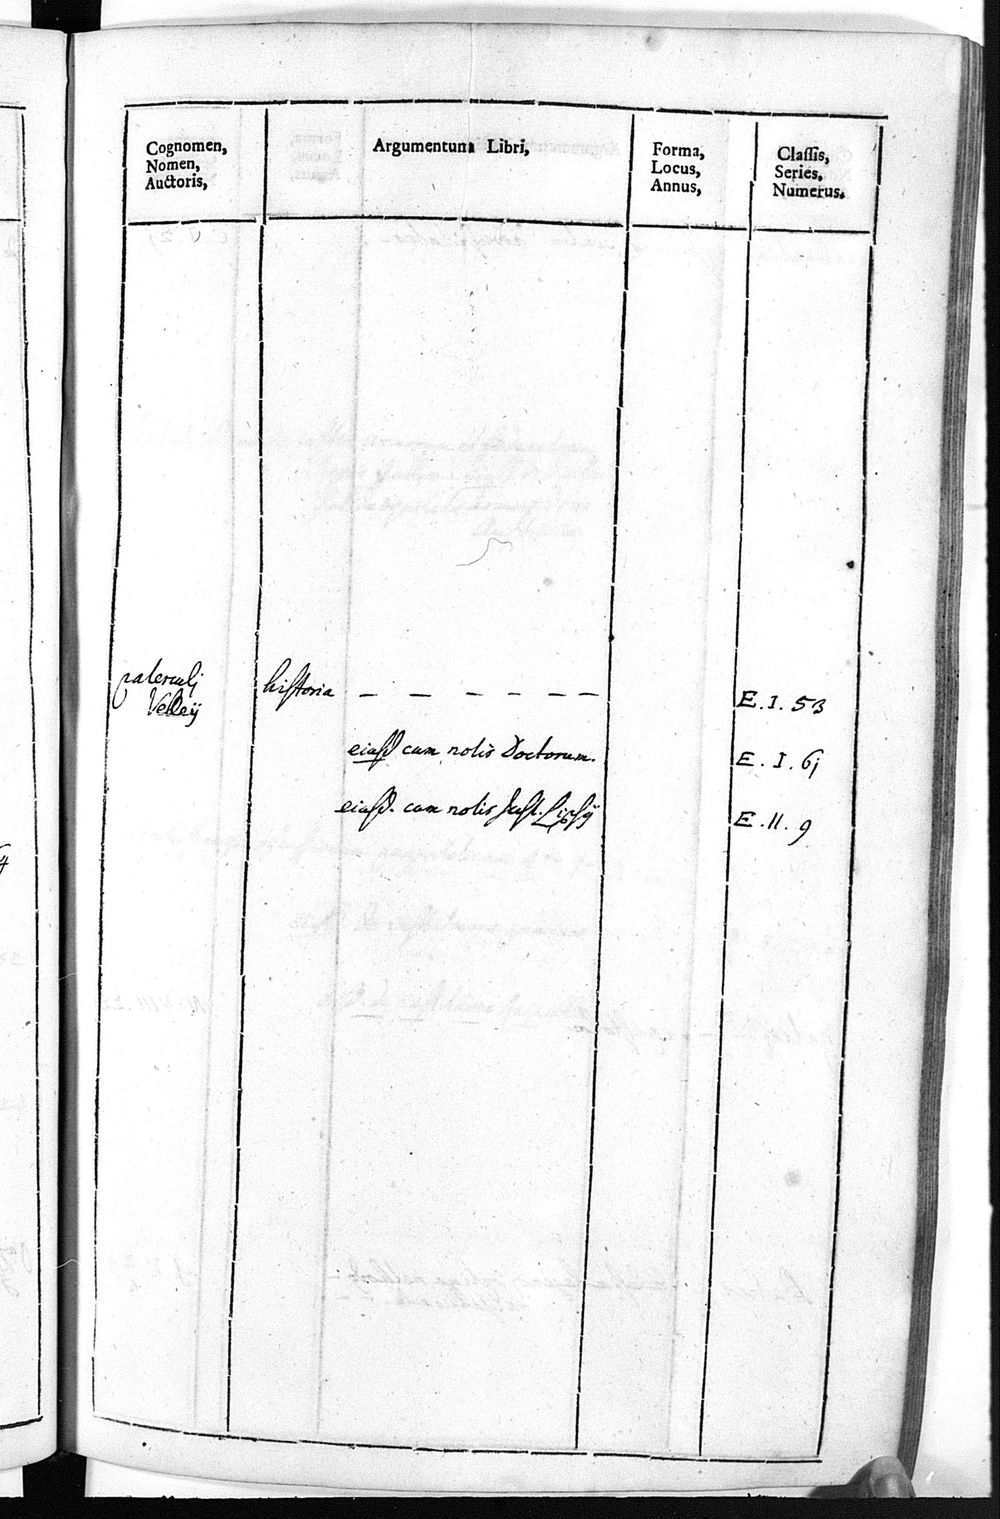 Cognomen,
Nomen,
Auctoris,
Argumentum Libri,
Forma,
Locus,
Annus,
Classis,
Series,
Numerus.
paterculj historia — — — — — — E. I. 53
Velleij
eiusd cum notis Doctorum. E. I. 6j
eiusd. cum notis Just. Lipsij E. II. 9